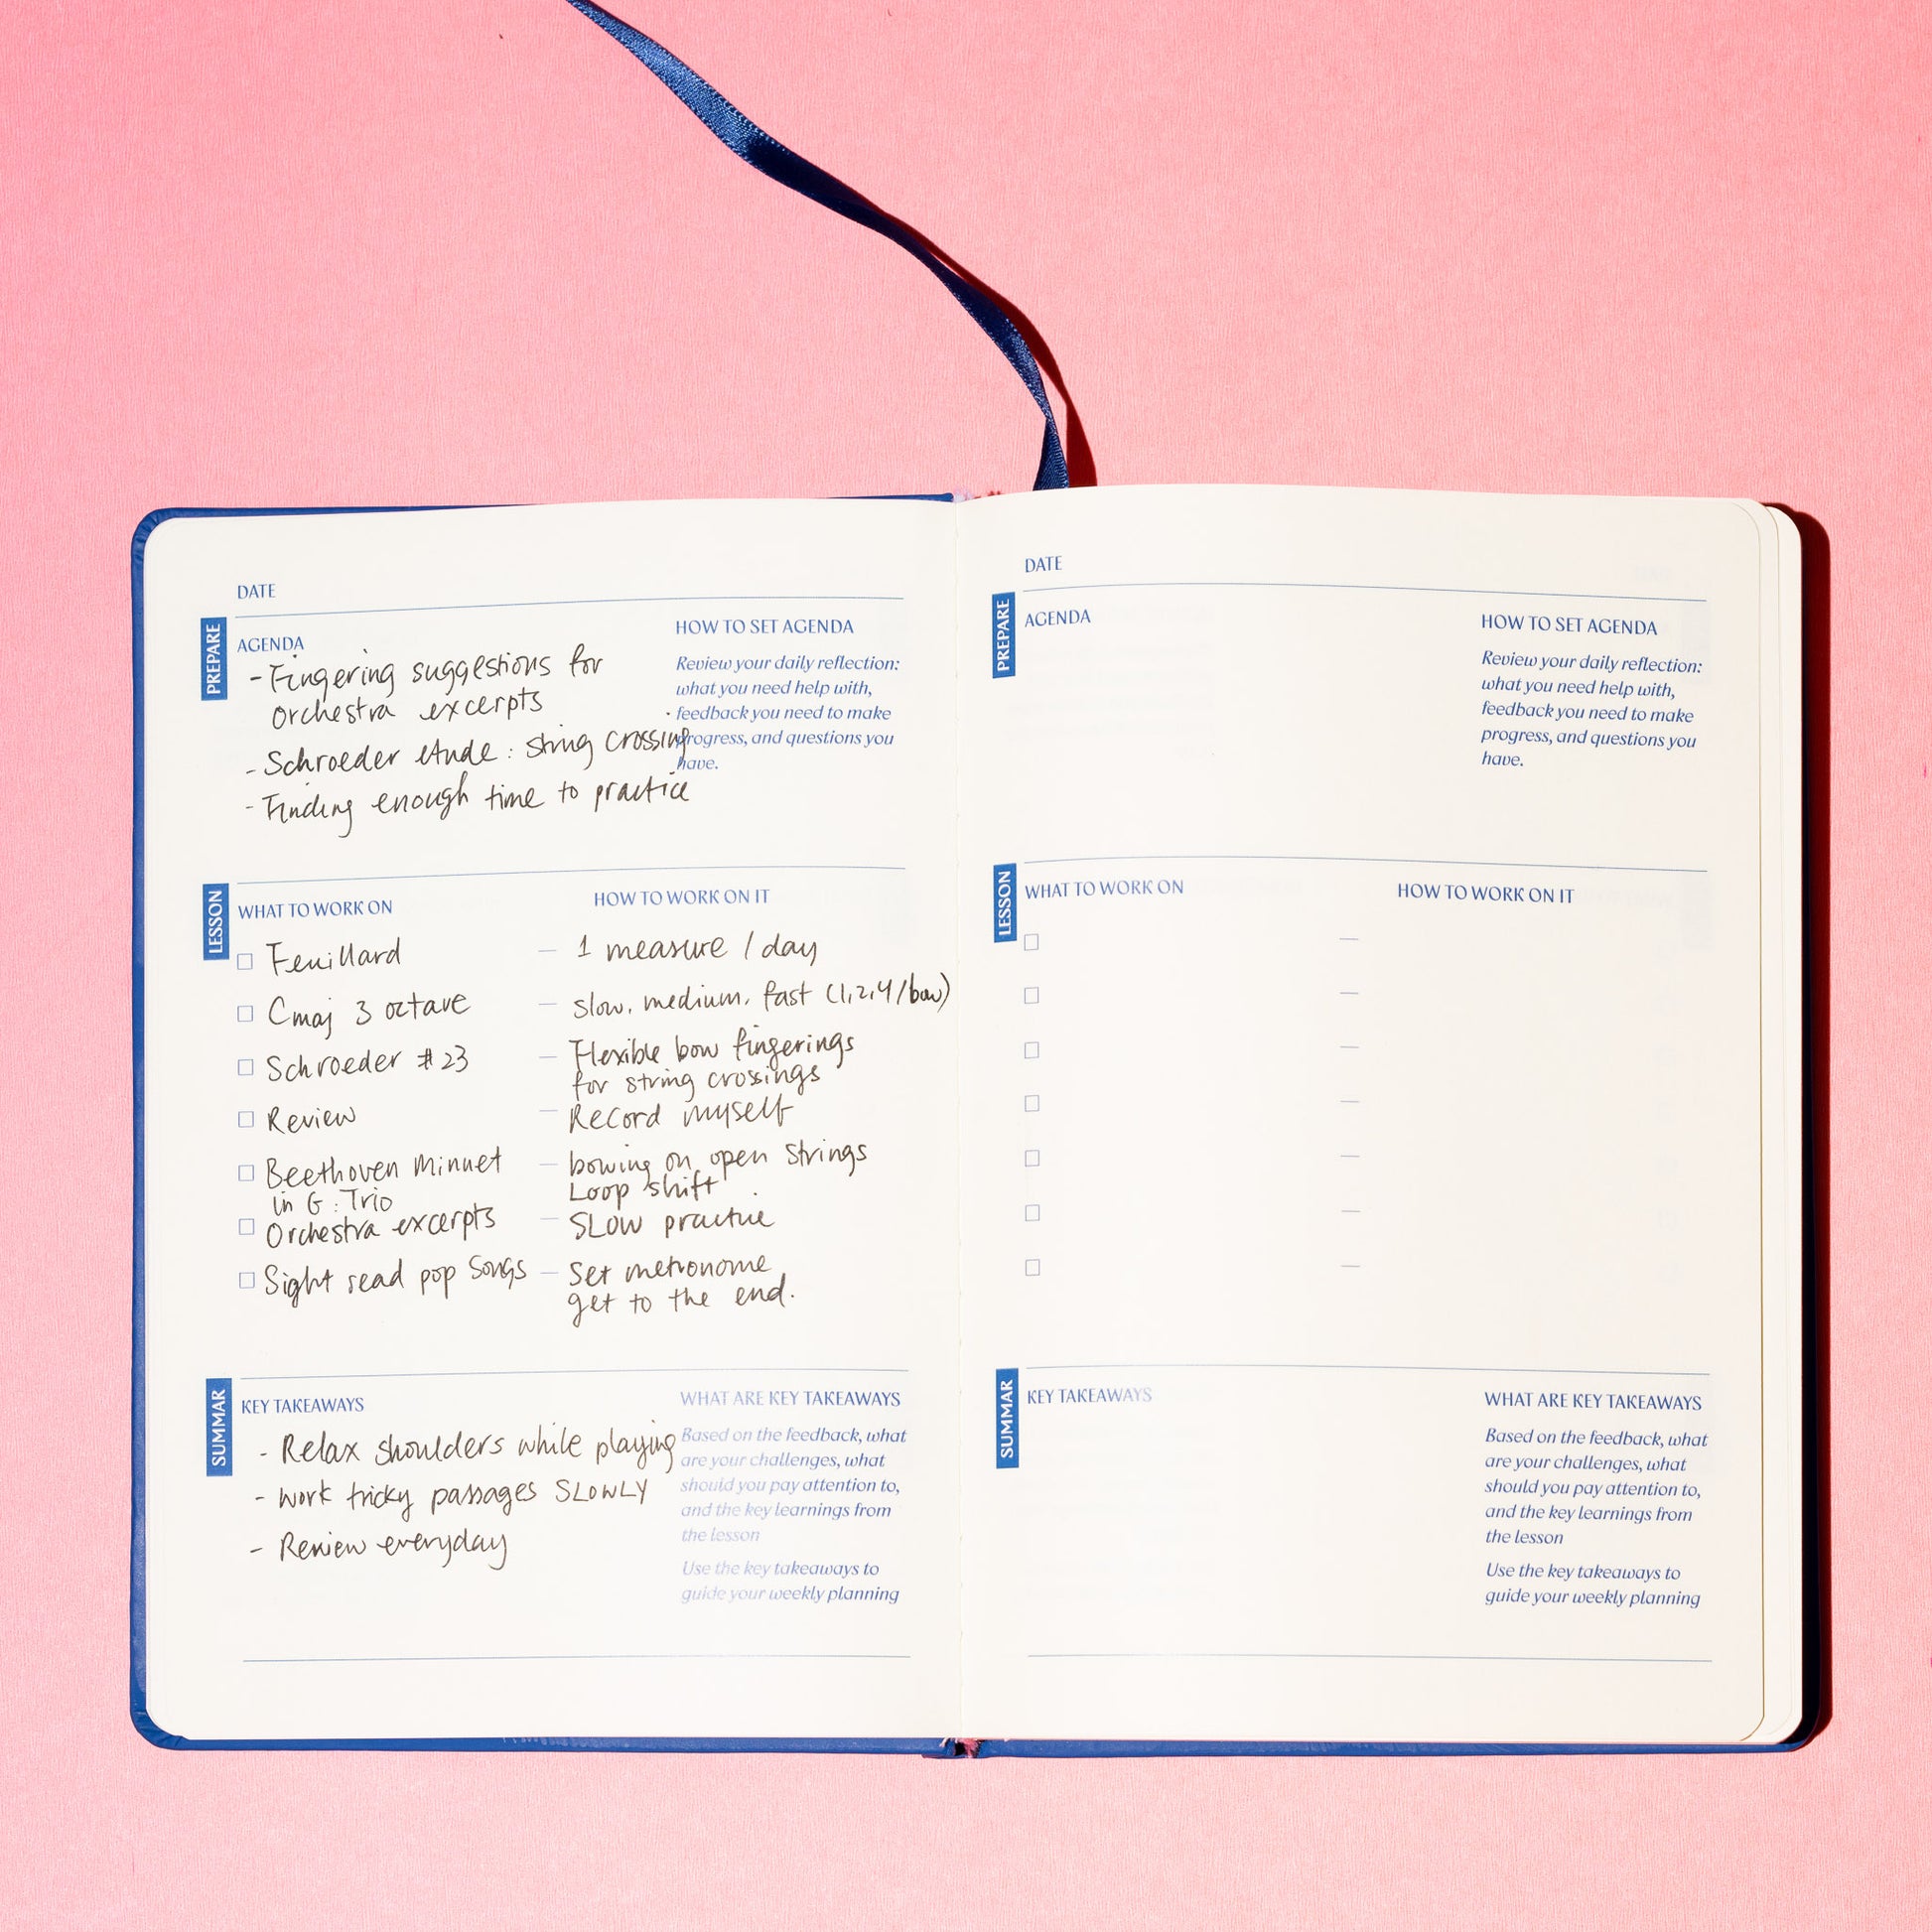 DATE
PREPARE
AGENDA
- Fingering suggestions for
orchestra excerpts
- Schroeder etude: string crossing
- Finding enough time to practice
HOW TO SET AGENDA
Review your daily reflection:
what you need help with,
feedback you need to make
progress, and questions you
have.
LESSON
WHAT TO WORK ON
HOW TO WORK ON IT
Feuillard — 1 measure / day
Cmaj 3 octave — slow, medium, fast (1,2,4/bow)
Schroeder #23 — Flexible bow fingerings
for string crossings
Review — Record myself
Beethoven Minuet — bowing on open strings
in G: Trio Loop shift
Orchestra excerpts — SLOW practice
Sight read pop songs — Set metronome
get to the end.
SUMMAR
KEY TAKEAWAYS
- Relax shoulders while playing
- Work tricky passages SLOWLY
- Review everyday
WHAT ARE KEY TAKEAWAYS
Based on the feedback, what
are your challenges, what
should you pay attention to,
and the key learnings from
the lesson
Use the key takeaways to
guide your weekly planning
DATE
PREPARE
AGENDA
HOW TO SET AGENDA
Review your daily reflection:
what you need help with,
feedback you need to make
progress, and questions you
have.
LESSON
WHAT TO WORK ON
HOW TO WORK ON IT
SUMMAR
KEY TAKEAWAYS
WHAT ARE KEY TAKEAWAYS
Based on the feedback, what
are your challenges, what
should you pay attention to,
and the key learnings from
the lesson
Use the key takeaways to
guide your weekly planning